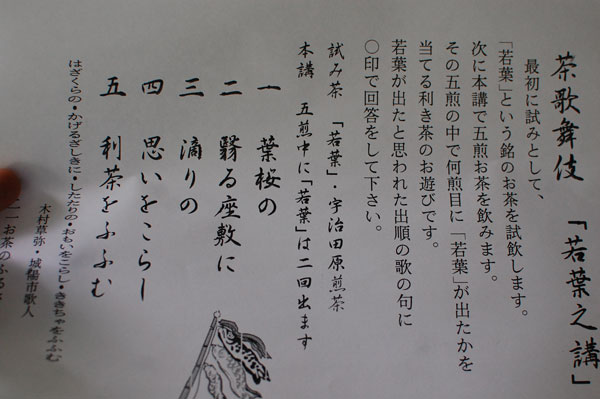 茶歌舞伎 「若葉之講」
最初に試みとして、
「若葉」という銘のお茶を試飲します。
次に本講で五煎お茶を飲みます。
その五煎の中で何煎目に「若葉」が出たかを
当てる利き茶のお遊びです。
若葉が出たと思われた出順の歌の句に
○印で回答をして下さい。
試み茶 「若葉」・宇治田原煎茶
本講 五煎中に「若葉」は二回出ます
一 葉桜の
二 翳る座敷に
三 滴りの
四 思いをこらし
五 利茶をふふむ
はざくらの・かげるざしきに・したたりの・おもいをこらし・ききちゃをふふむ
木村草弥・城陽市歌人
お茶のふるさ